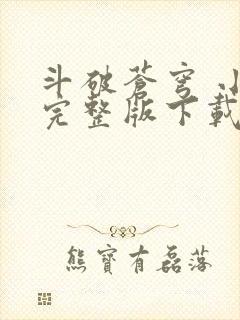 斗破苍穹
完整版下载
熊寶有磊落